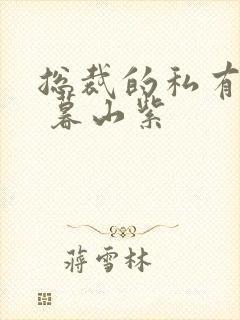 总裁的私有
暮山紫
蒋雪林